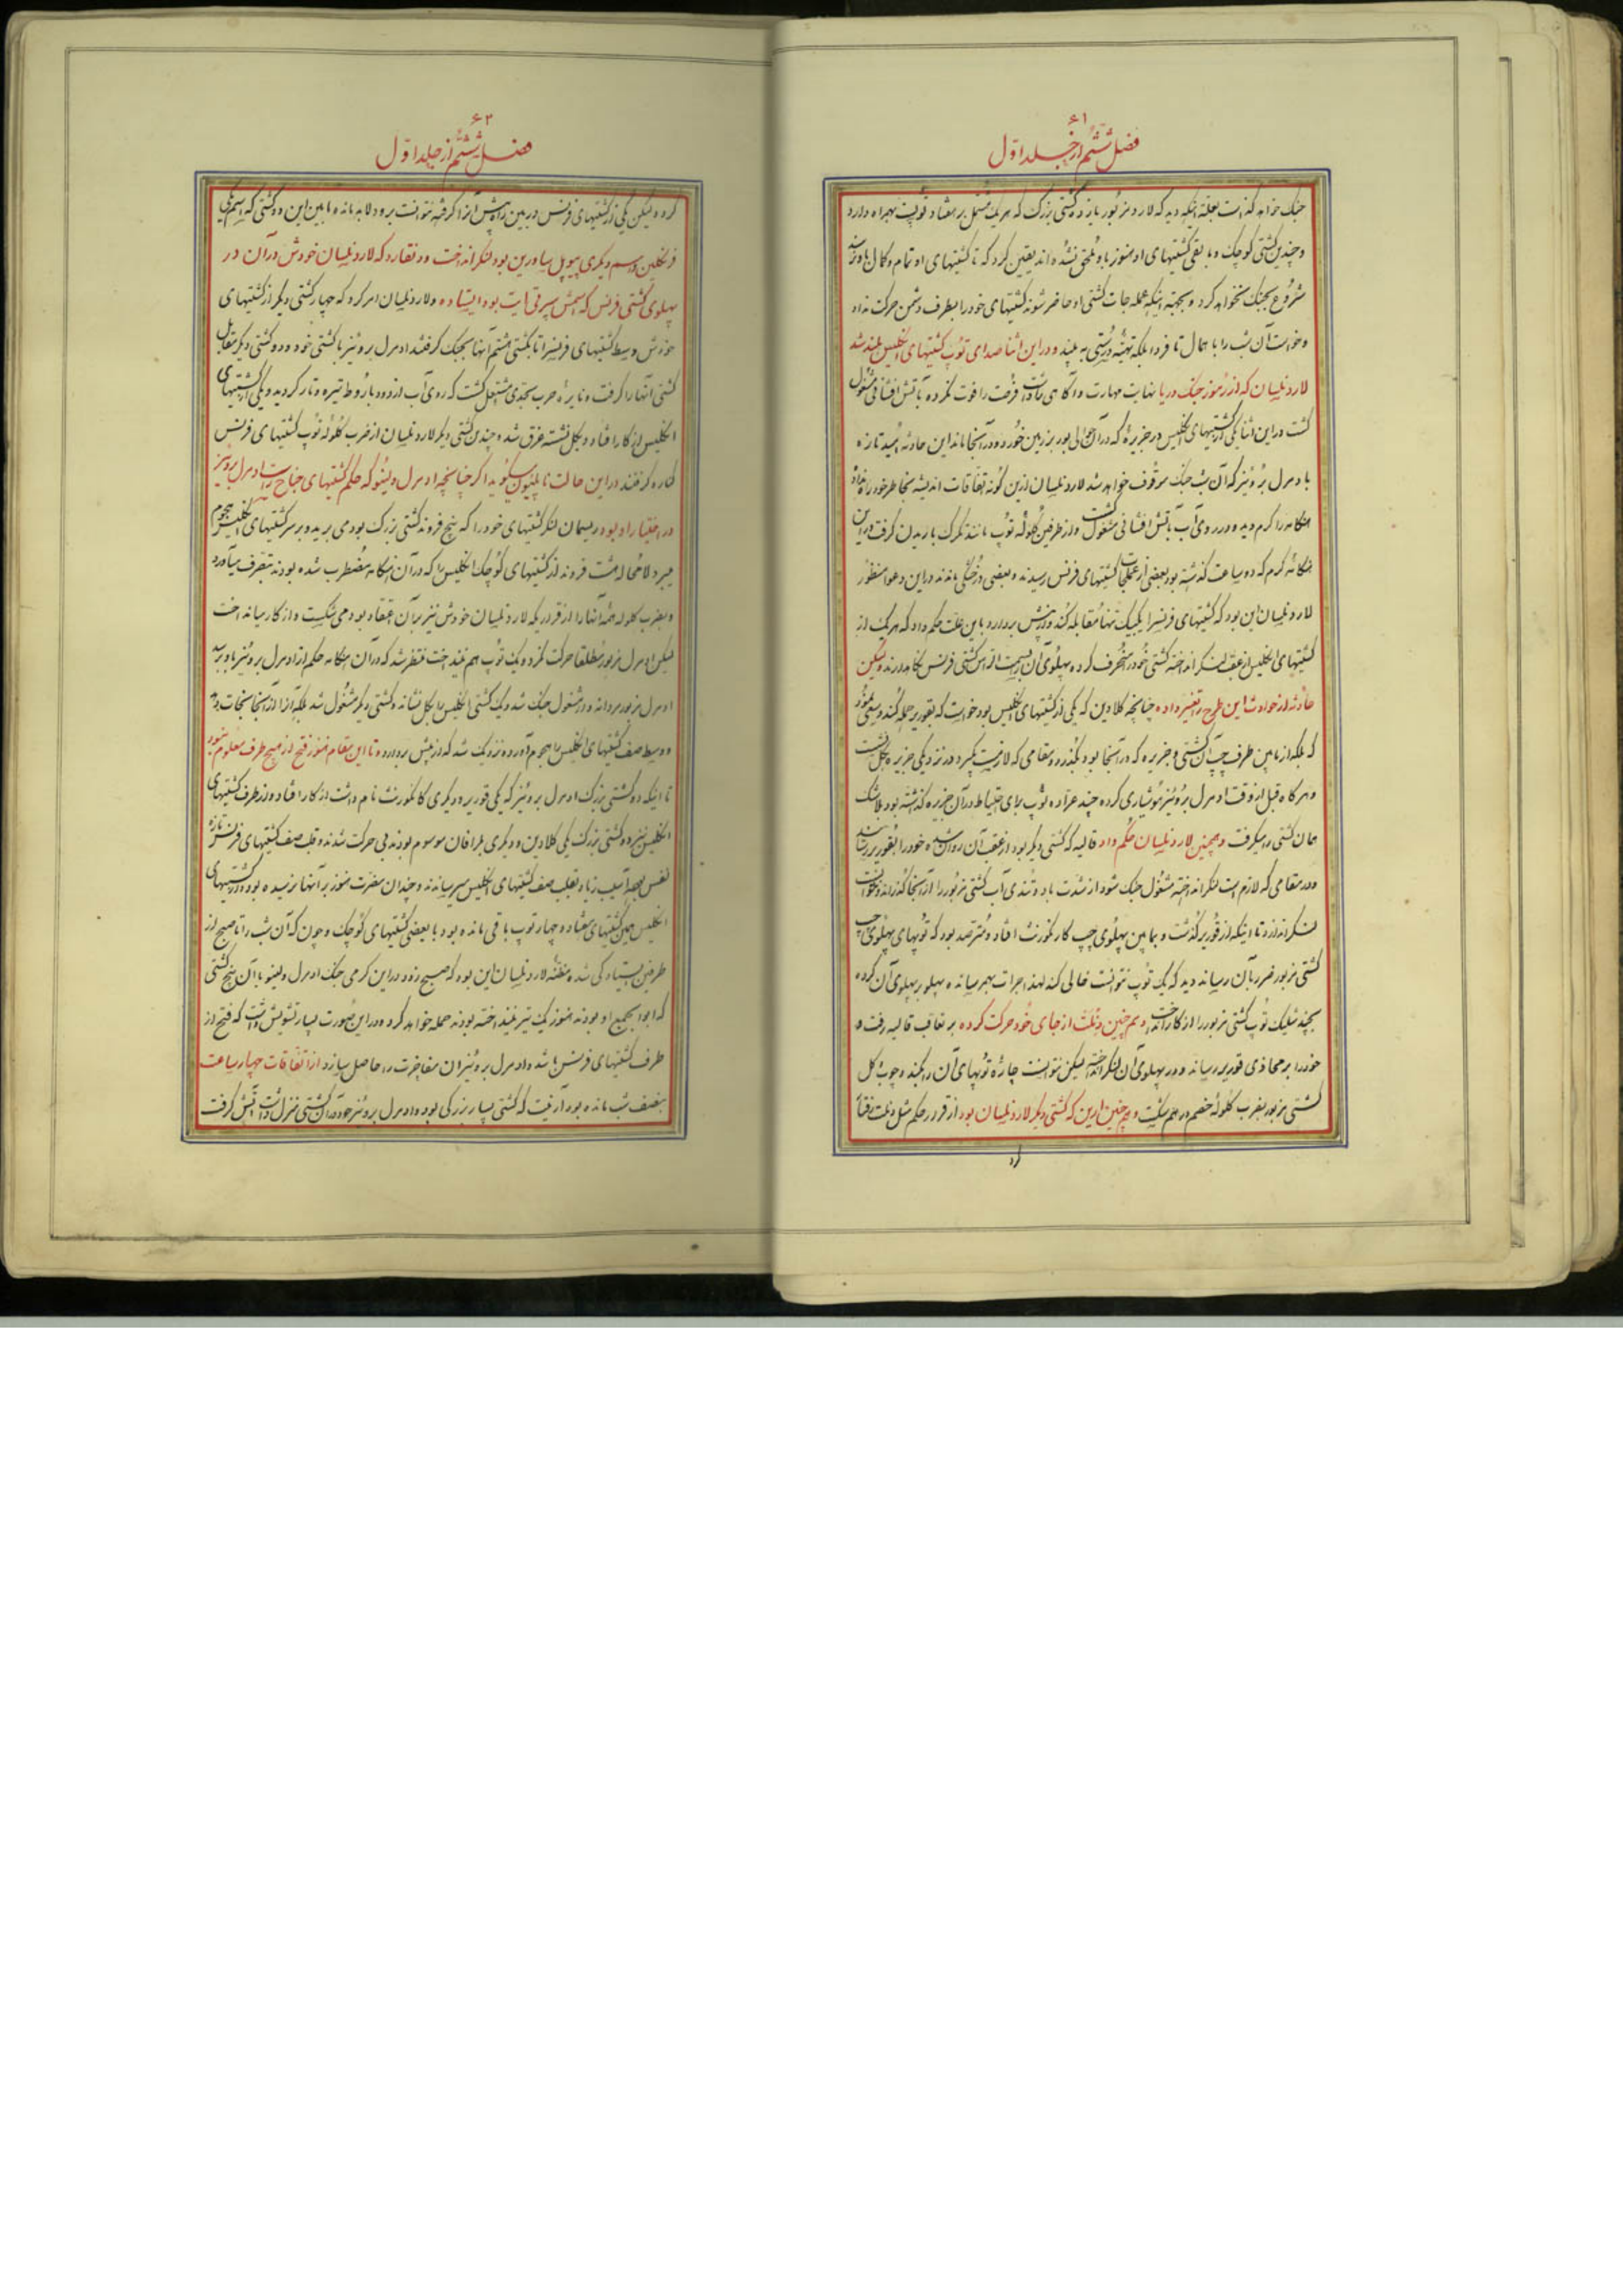 ۶۱
فصل ششم از جلد اول
جنک خواهد کذاشت بعلت اینکه دید که لارد مزبور یازده کشتی بزرک که هر یک مشتمل بر هفتاد توپست بهمراه دارد
و چندین کشتی کوچک و مابقی کشتیهای او هنوز باو ملحق نشده اند یقین کرد که تا کشتیهای او تمام و کمال باو نرسند
شروع بجنک نخواهد کرد و بجهة اینکه عمله جات کشتی او حاضر شوند کشتیهای خود را بطرف دشمن حرکت نداد
و خواست آن شب را باهمال تا فردا بلکه تهیه درستی به بیند و در این اثنا صدای توپ کشتیهای انکلیس بلند شد
لارد نلسان که از رموز جنک دریا نهایت مهارت و آکاهی داشت فرصت را فوت نکرده بآتش افشانی مشغول
کشت در این اثنا یکی از کشتیهای انکلیس در جزیره که در آن حوالی بود بر زمین خورده و در آنجا ماند این حادثه امید تازه
بادمرل بروئیز که آن شب جنک موقوف خواهد شد لارد نلسان ازین کونه اتفاقات اندیشه بخاطر خود راه نداد
هنکامه را کرم دیده در روی آب بآتش افشانی مشغول کشت و از طرفین کلوله توپ مانند تکرک باریدن کرفت در این
هنکامه کرم که دو ساعت کذشته بود بعضی از عملجات کشتیهای فرنس رسیدند و بعضی در خشکی ماندند در این دعوا منظور
لارد نلسان این بود که کشتیهای فرنس را یک یک تنها مقابله کند و از پیش بردارد باین علت حکم داد که هر یک از
کشتیهای انکلیس از عقب لنکر انداخته کشتی خود را منحرف کرده پهلوی آن را بسمت از اس کشتی فرنس نکاهدارند ولیکن
حادثه از حوادث این طرح را تغییر داده چنانچه کلادین که یکی از کشتیهای انکلیس بود خواست که بقوریر حمله کند و سعی نمود
که بلکه از مابین طرف چپ آن کشتی و جزیره که در آنجا بود بکذرد و مقامی که لازمست بکیرد در نزدیکی جزیره بکل نشست
و هر کاه قبل از وقت ادمرل بروئیز هوشیاری کرده چند عراده توپ برای احتیاط در آن جزیره کذاشته بود بلاشک
همان کشتی را میکرفت و همچنین لارد نلسان حکم داد قالیه که کشتی دیکر بود از عقب آن روان شده خود را بقوریر رسانید
و در مقامی که لازم است لنکر انداخته مشغول جنک شود از شدت باد و تندی آب کشتی مزبور را از آنجا کذرانده نتوانست
لنکر اندازد تا اینکه از قوریر کذشت و بمابین پهلوی چپ کارکورنت افتاد و مترصد بود که توپهای پهلوی چپ
کشتی مزبور ضرر بآن رساند دید که یک توپ نتوانست خالی کند لهذا جرات بهم رسانده پهلو بر پهلوی آن کرده
بچند شلیک توپ کشتی مزبور را از کار انداخت و هم چنین دتلت از جای خود حرکت کرده بر تعاقب قالیه رفت و
خود را بر محاذی قوریر رسانده و در پهلوی آن لنکر انداخته لیکن نتوانست چاره توپهای آن را بکند و چوب دکل
کشتی مزبور بضرب کلوله خصم درهم شکست و هم چنین ادین که کشتی دیکر لارد نلسان بود از قرار حکم مثل دتلت رفتار
۶۲
فصل ششم از جلد اول
کرده لیکن یکی از کشتیهای فرنس در بین راه پیش آنرا کرفته نتوانست برود لابد مانده مابین این دو کشتی که اسم یکی
فرنکلین و اسم دیکری پیوپل سیاورین بود لنکر انداخت و دنقارد که لارد نلسان خودش در آن در
پهلوی کشتی فرنس که اسمش سپرتی ایت بود ایستاده و لارد نلسان امر کرد که چهار کشتی دیکر از کشتیهای
خودش وسط کشتیهای فرنس را تا کشتی هشتم آنها بجنک کرفتند ادمرل بروئیز با کشتی خود و دو کشتی دیکر مقابل
کشتی آنها را کرفت و نایره حرب بحدی مشتعل کشت که روی آب از دود باروط تیره و تار کردید و یکی از کشتیهای
انکلیس از کار افتاد و بکل نشسته غرق شد و چندین کشتی دیکر لارد نلسان از ضرب کلوله توپ کشتیهای فرنس
کناره کرفتند در این حالت ناپلیون میکوید اکر چنانچه ادمرل ولینو که حکم کشتیهای جناح راست ادمرل بروئیز
در اختیار او بود ریسمان لنکر کشتیهای خود را که پنج فروند کشتی بزرک بودمی بریده و بر سر کشتیهای انکلیس هجوم
میبرد لامحاله هشت فروند از کشتیهای کوچک انکلیس را که در آن هنکامه مضطرب شده بودند بتصرف میآورد
و بضرب کلوله همه آنها را از قراریکه لارد نلسان خودش نیز بر آن اعتقاد بود می شکست و از کار میانداخت
لیکن ادمرل مزبور مطلقا حرکت نکرد و یک توپ هم نینداخت منتظر شد که در آن هنکامه حکم از ادمرل بروئیز باو برسد
ادمرل مزبور مردانه وار مشغول جنک شد و یک کشتی انکلیس را بکل نشانده و کشتی دیکر مشغول شد بلکه آنرا از آنجا نجات دهد
و وسط صف کشتیهای انکلیس را هجوم آورده نزدیک شد که از پیش بردارد و تا این مقام هنوز فتح از هیچ طرف معلوم نبود
تا اینکه دو کشتی بزرک ادمرل بروئیز که یکی قوریر و دیکری کانکورنت نام داشت از کار افتاد و از طرف کشتیهای
انکلیس نیز دو کشتی بزرک یکی کلادین و دیکری بلرافان موسوم بودند بی حرکت شدند و قلب صف کشتیهای فرنس تازه
نفس بوده آسیب زیاد بقلب صف کشتیهای انکلیس میرساندند و چندان مضرت هنوز بر آنها نرسیده بود و از کشتیهای
انکلیس همین کشتیهای هفتاد و چهار توپ باقی مانده بود با بعضی کشتیهای کوچک و چون که آن شب را تا صبح از
طرفین ایستادگی شد و مظنه لارد نلسان این بود که صبح زود در این کرمی جنک ادمرل ولینو با آن پنج کشتی
که ابوابجمع او بودند هنوز یک تیر نینداخته بودند حمله خواهد کرد و در این صورت بسیار تشویش داشت که فتح از
طرف کشتیهای فرنس باشد و ادمرل بروئیز آن مفاخرت را حاصل سازد از اتفاقات چهار ساعت
بنصف شب مانده بود آرنیت که کشتی بسیار بزرکی بود و ادمرل بروئیز خود در آن کشتی منزل داشت آتش کرفت